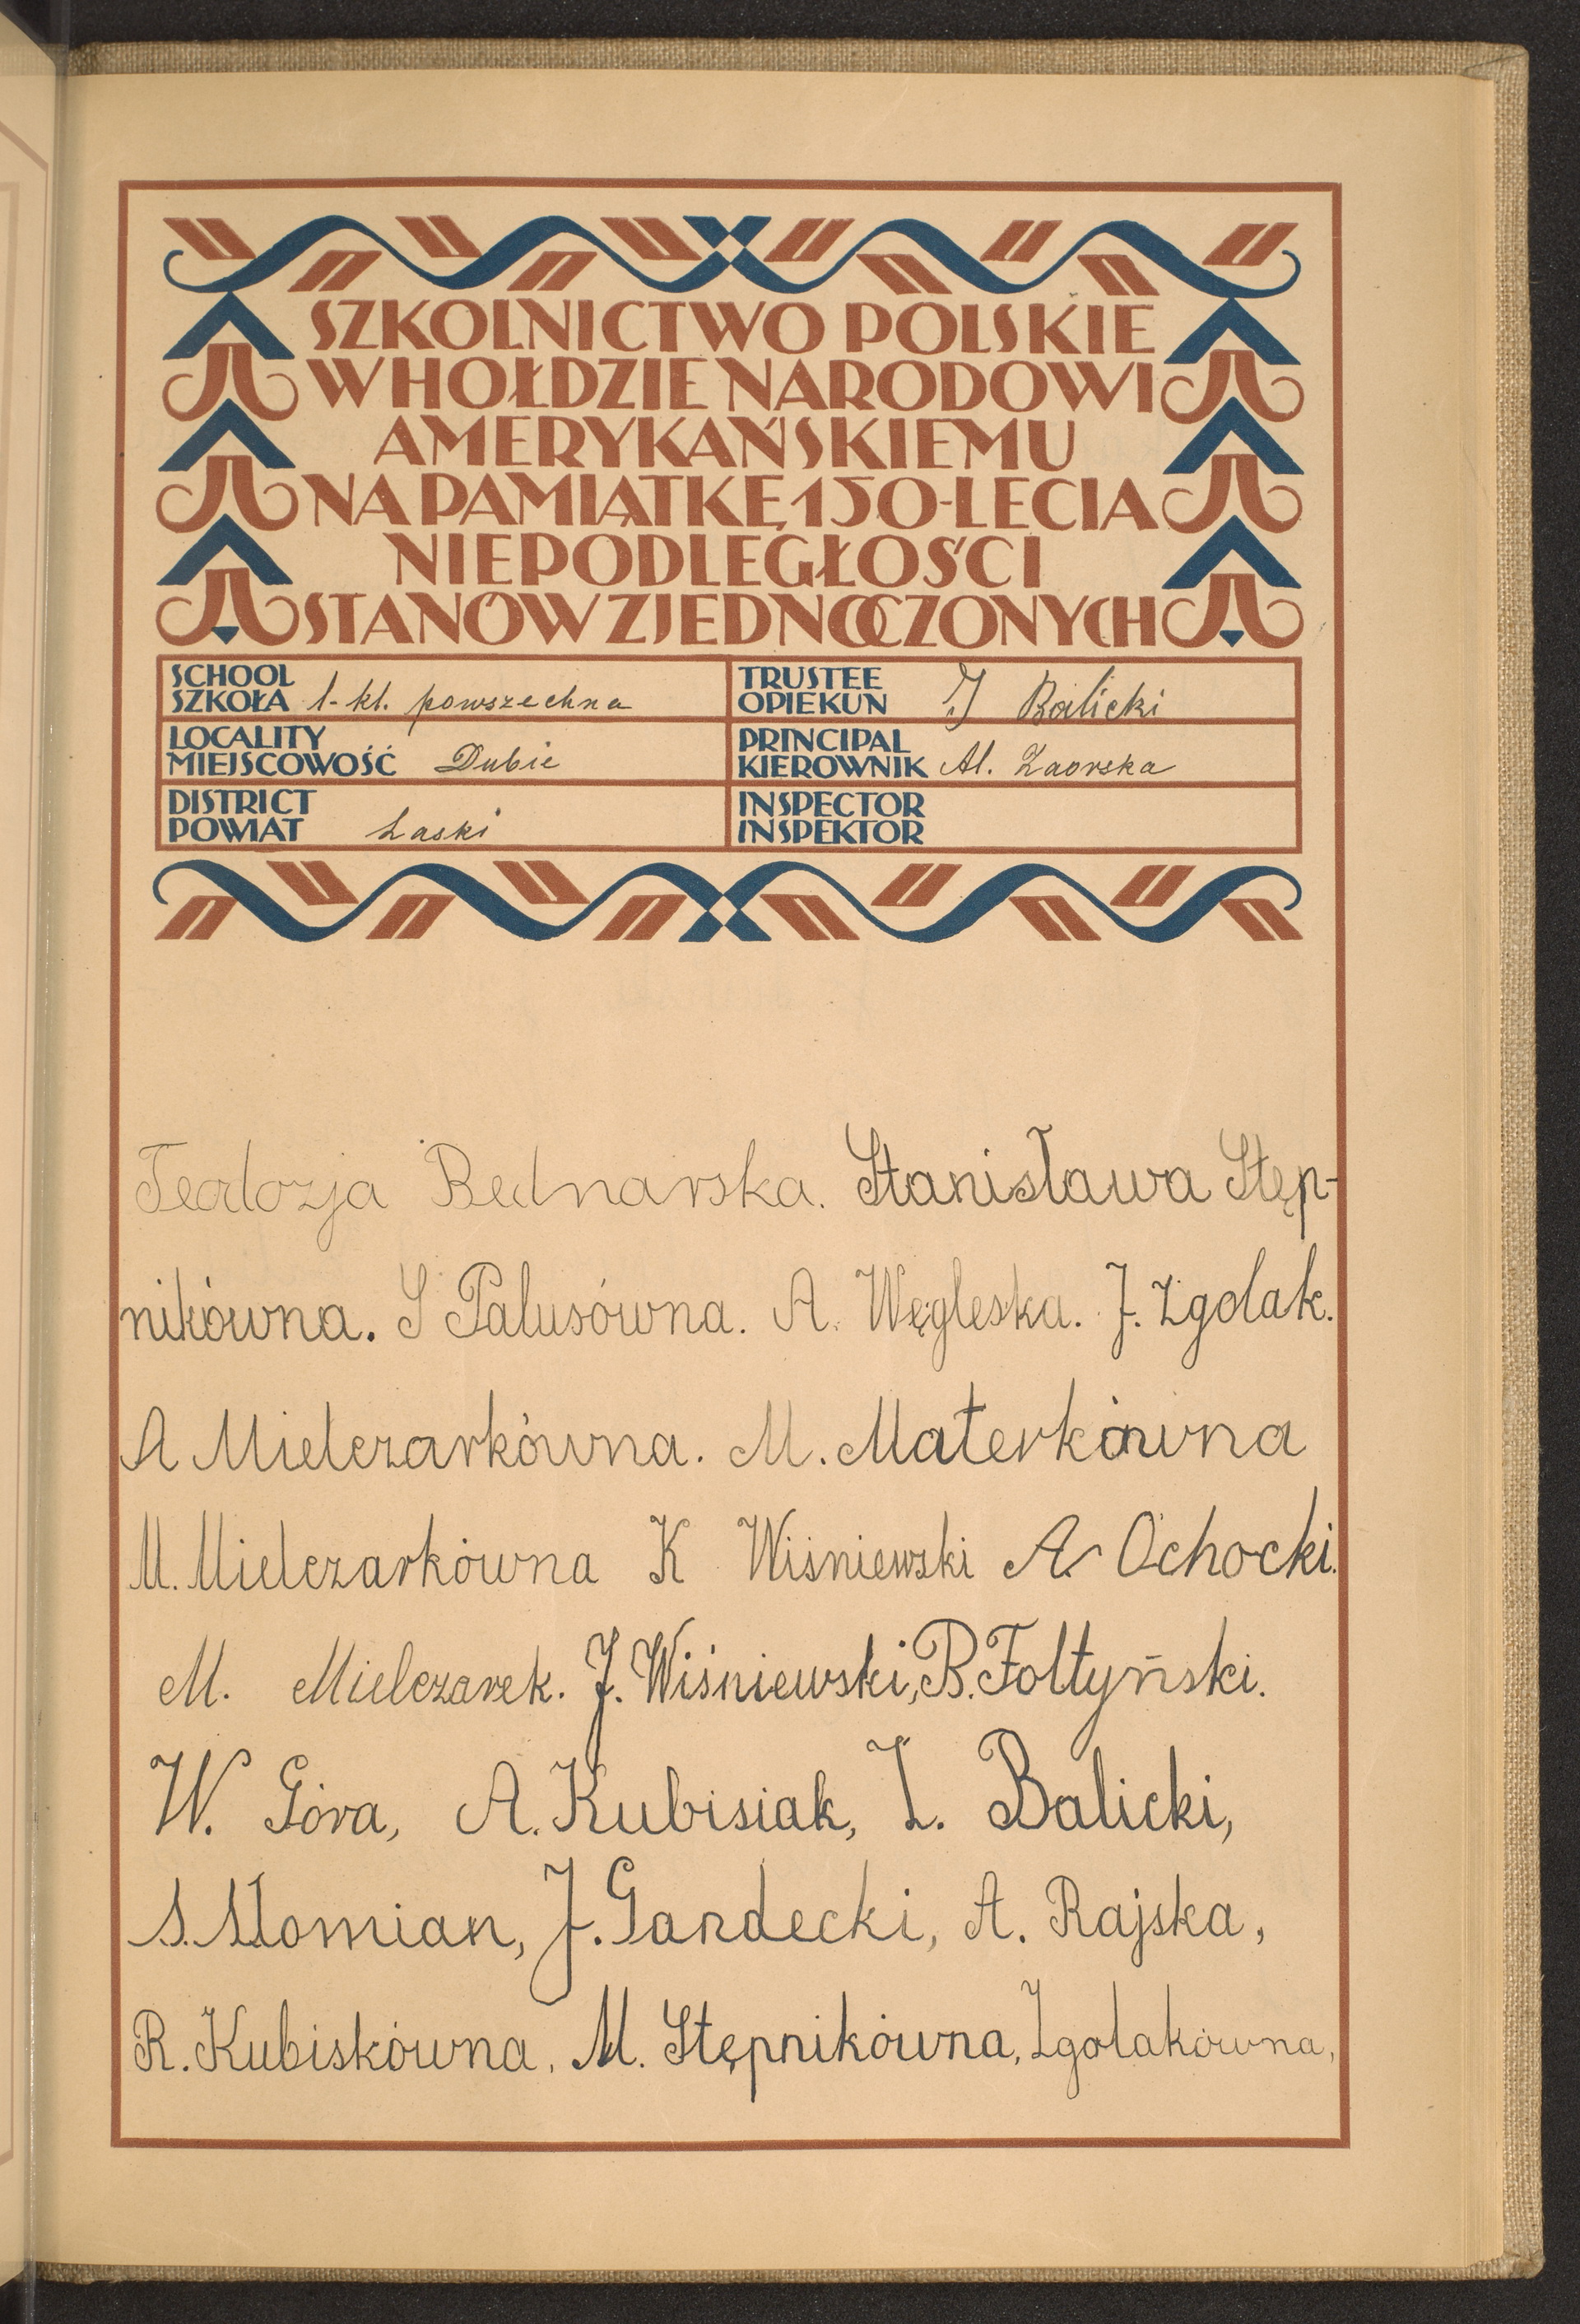 SZKOLNICTWO POLSKIE
W HOŁDZIE NARODOWI
AMERYKAŃSKIEMU
NA PAMIĄTKĘ 150-LECIA
NIEPODLEGŁOŚCI
STANÓW ZJEDNOCZONYCH
SCHOOL
SZKOŁA 1-kl. powszechna
TRUSTEE
OPIEKUN J Balicki
LOCALITY
MIEJSCOWOŚĆ Dubie
PRINCIPAL
KIEROWNIK Al. Zaorska
DISTRICT
POWIAT Łaski
INSPECTOR
INSPEKTOR
Teodozja Bednarska. Stanisława Stęp-
nikówna. S Palusówna. A. Węgleska. J. Zgolak.
A Mielczarkówna. M. Materkówna
M. Mielczarkówna K Wiśniewski A. Ochocki.
M. Mielczarek. J. Wiśniewski, B. Fołtyński.
W. Góra, A. Kubisiak, I. Balicki,
S. Słomian, J. Gardecki, A. Rajska,
R. Kubiskówna, M. Stępnikówna, Zgolakówna,